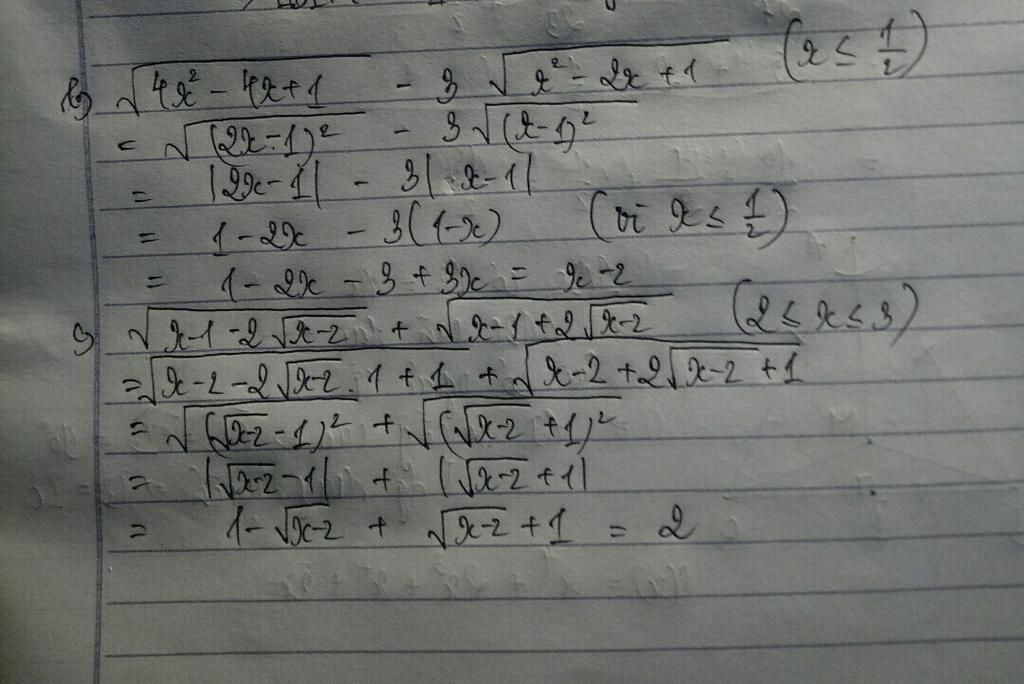 b) √(4x² - 4x + 1) - 3 √(x² - 2x + 1) (x ≤ 1/2)
= √((2x - 1)²) - 3 √((x - 1)²)
= |2x - 1| - 3 |x - 1|
= 1 - 2x - 3(1 - x) (vì x ≤ 1/2)
= 1 - 2x - 3 + 3x = x - 2
c) √(x - 1 - 2√(x - 2)) + √(x - 1 + 2√(x - 2)) (2 ≤ x ≤ 3)
= √(x - 2 - 2√(x - 2) . 1 + 1) + √(x - 2 + 2√(x - 2) + 1)
= √((√(x - 2) - 1)²) + √((√(x - 2) + 1)²)
= |√(x - 2) - 1| + |√(x - 2) + 1|
= 1 - √(x - 2) + √(x - 2) + 1 = 2